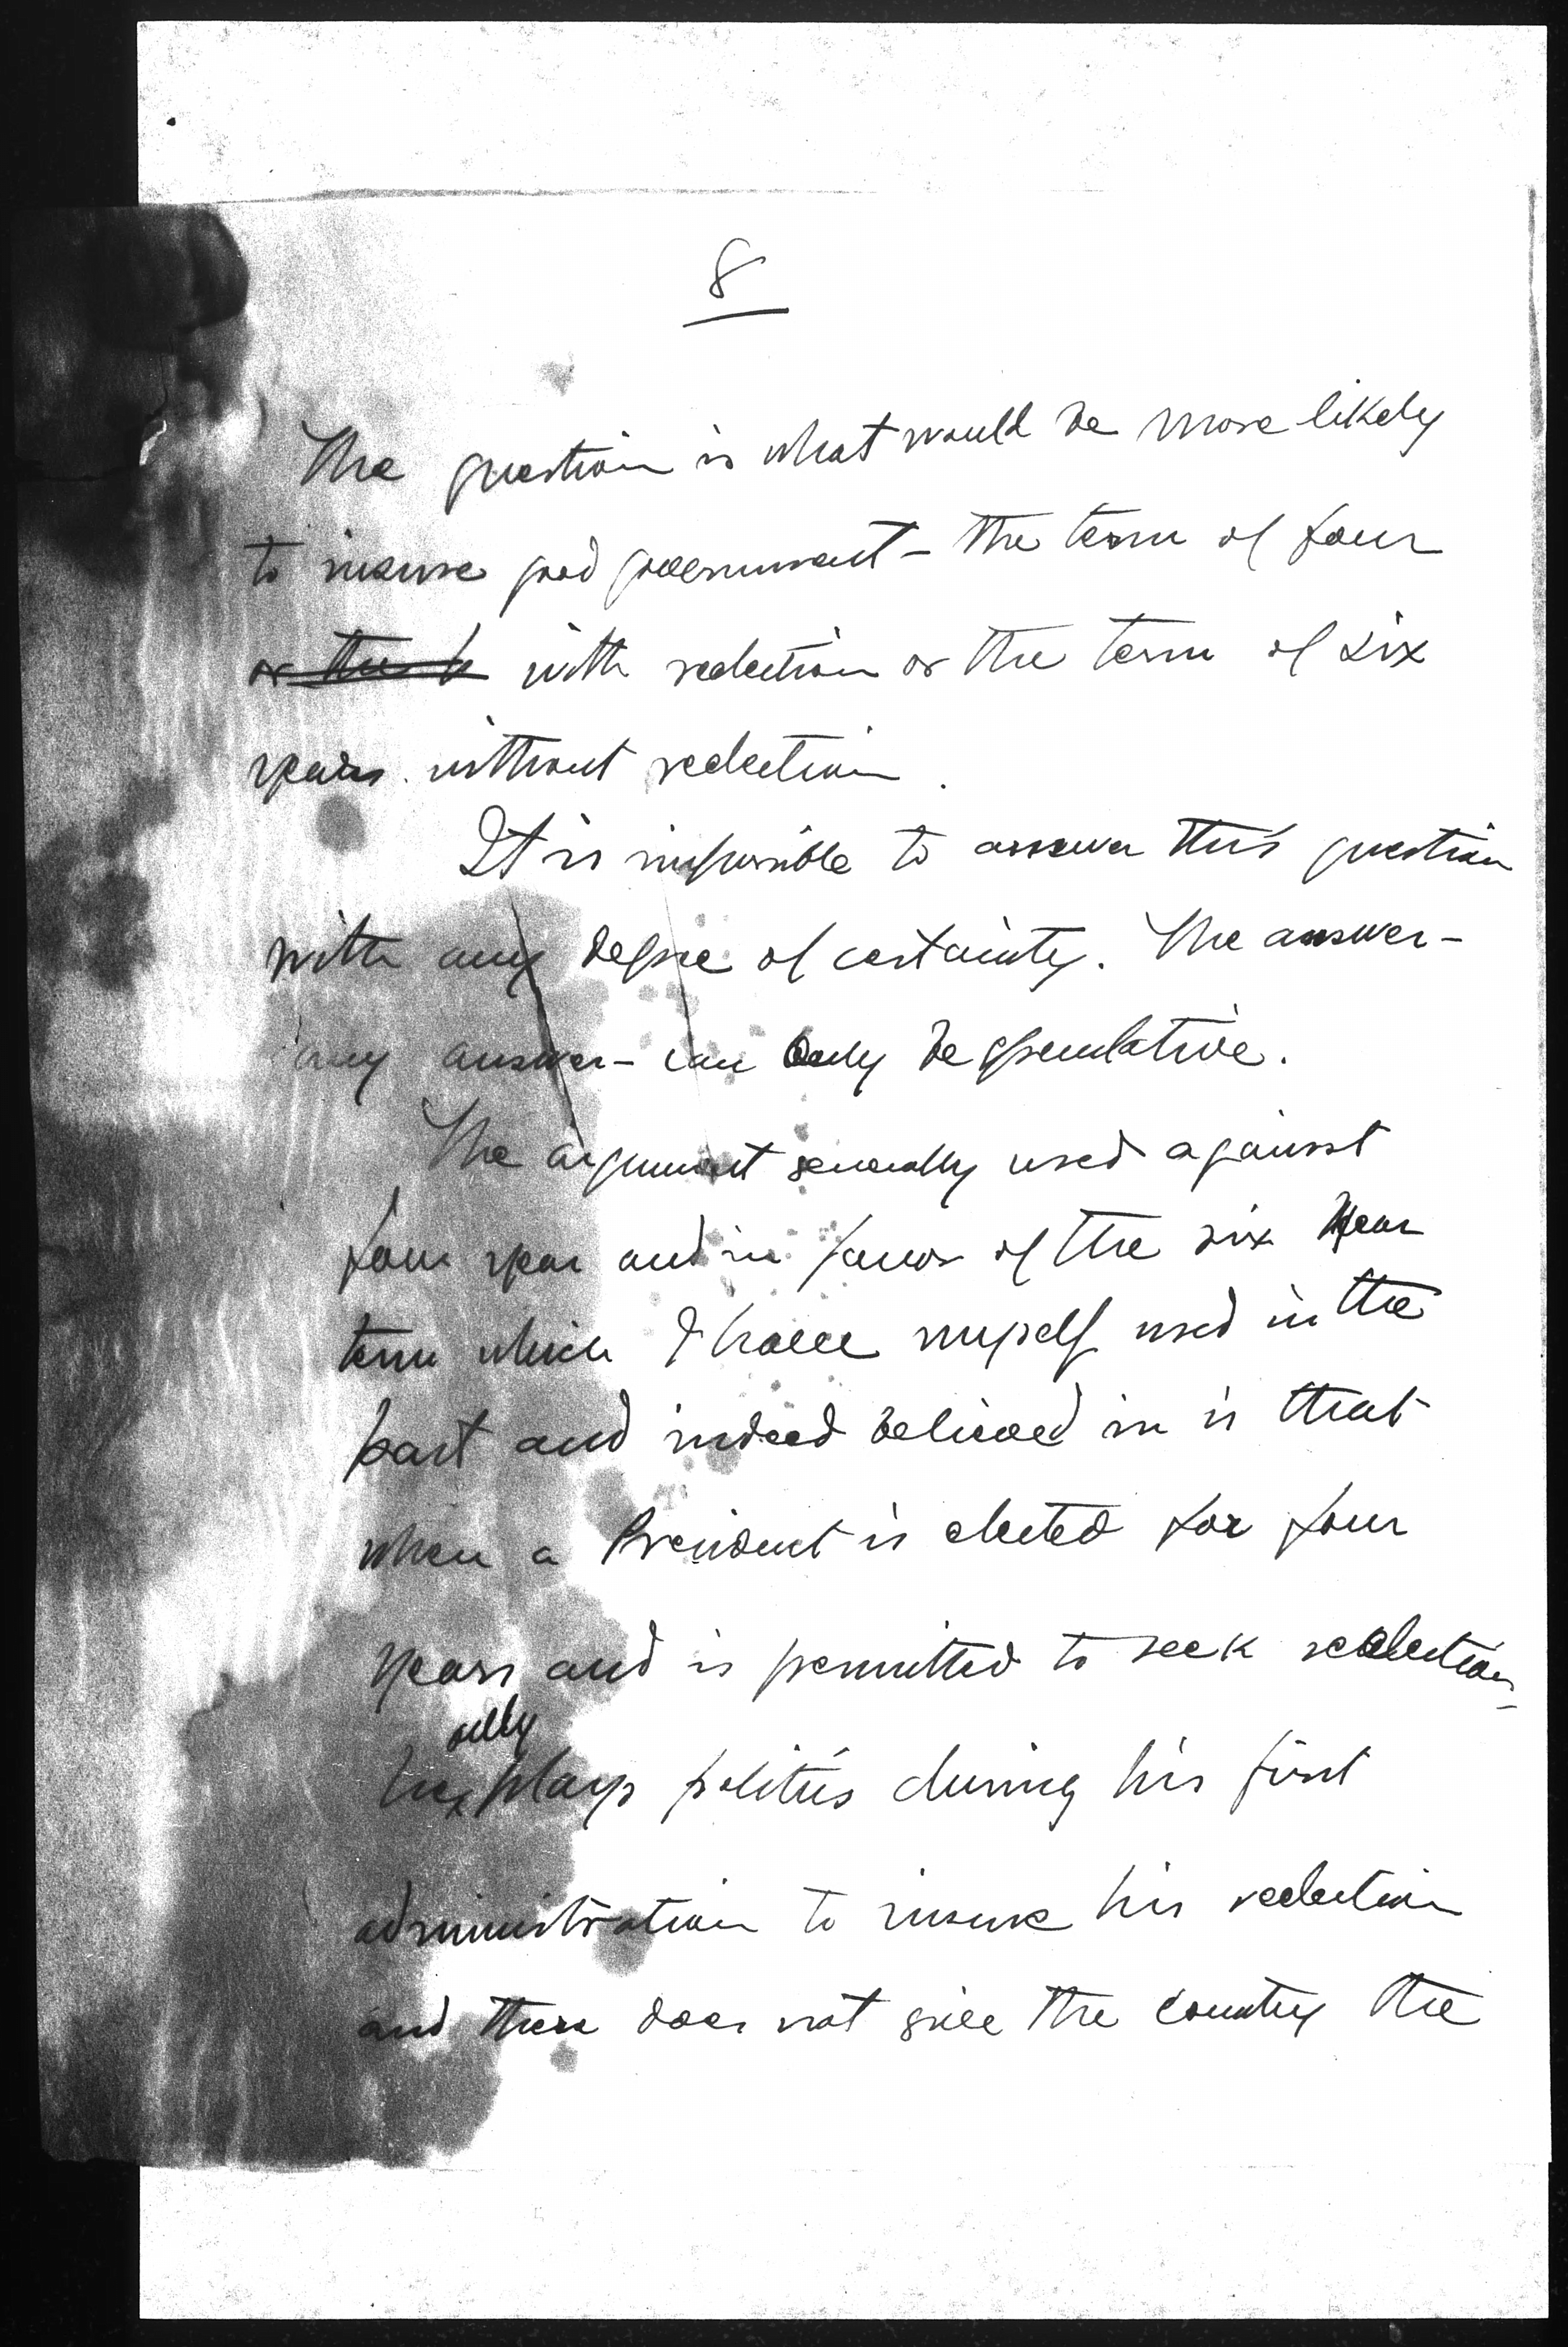 8
The question is what would be more likely
to insure good government – the term of four
or the with reelection or the term of six
years without reelection.
It is impossible to answer this question
with any degree of certainty. The answer –
any answer – can only be speculative.
The argument generally used against
four year and in favor of the six year
term which I have myself used in the
past and indeed believed in is that
when a President is elected for four
years and is permitted to seek reelection
he plays politics during his first
administration to insure his reelection
and does not give the country the